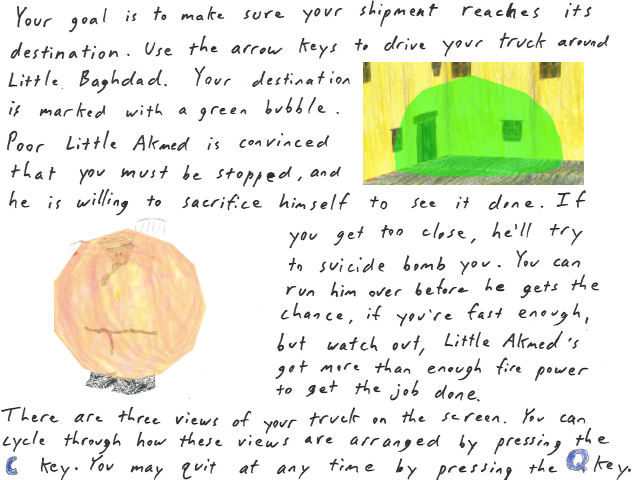 Your goal is to make sure your shipment reaches its
destination. Use the arrow keys to drive your truck around
Little Baghdad. Your destination
is marked with a green bubble.
Poor Little Akmed is convinced
that you must be stopped, and
he is willing to sacrifice himself to see it done. If
you get too close, he'll try
to suicide bomb you. You can
run him over before he gets the
chance, if you're fast enough,
but watch out, Little Akmed's
got more than enough fire power
to get the job done.
There are three views of your truck on the screen. You can
cycle through how these views are arranged by pressing the
C key. You may quit at any time by pressing the Q key.